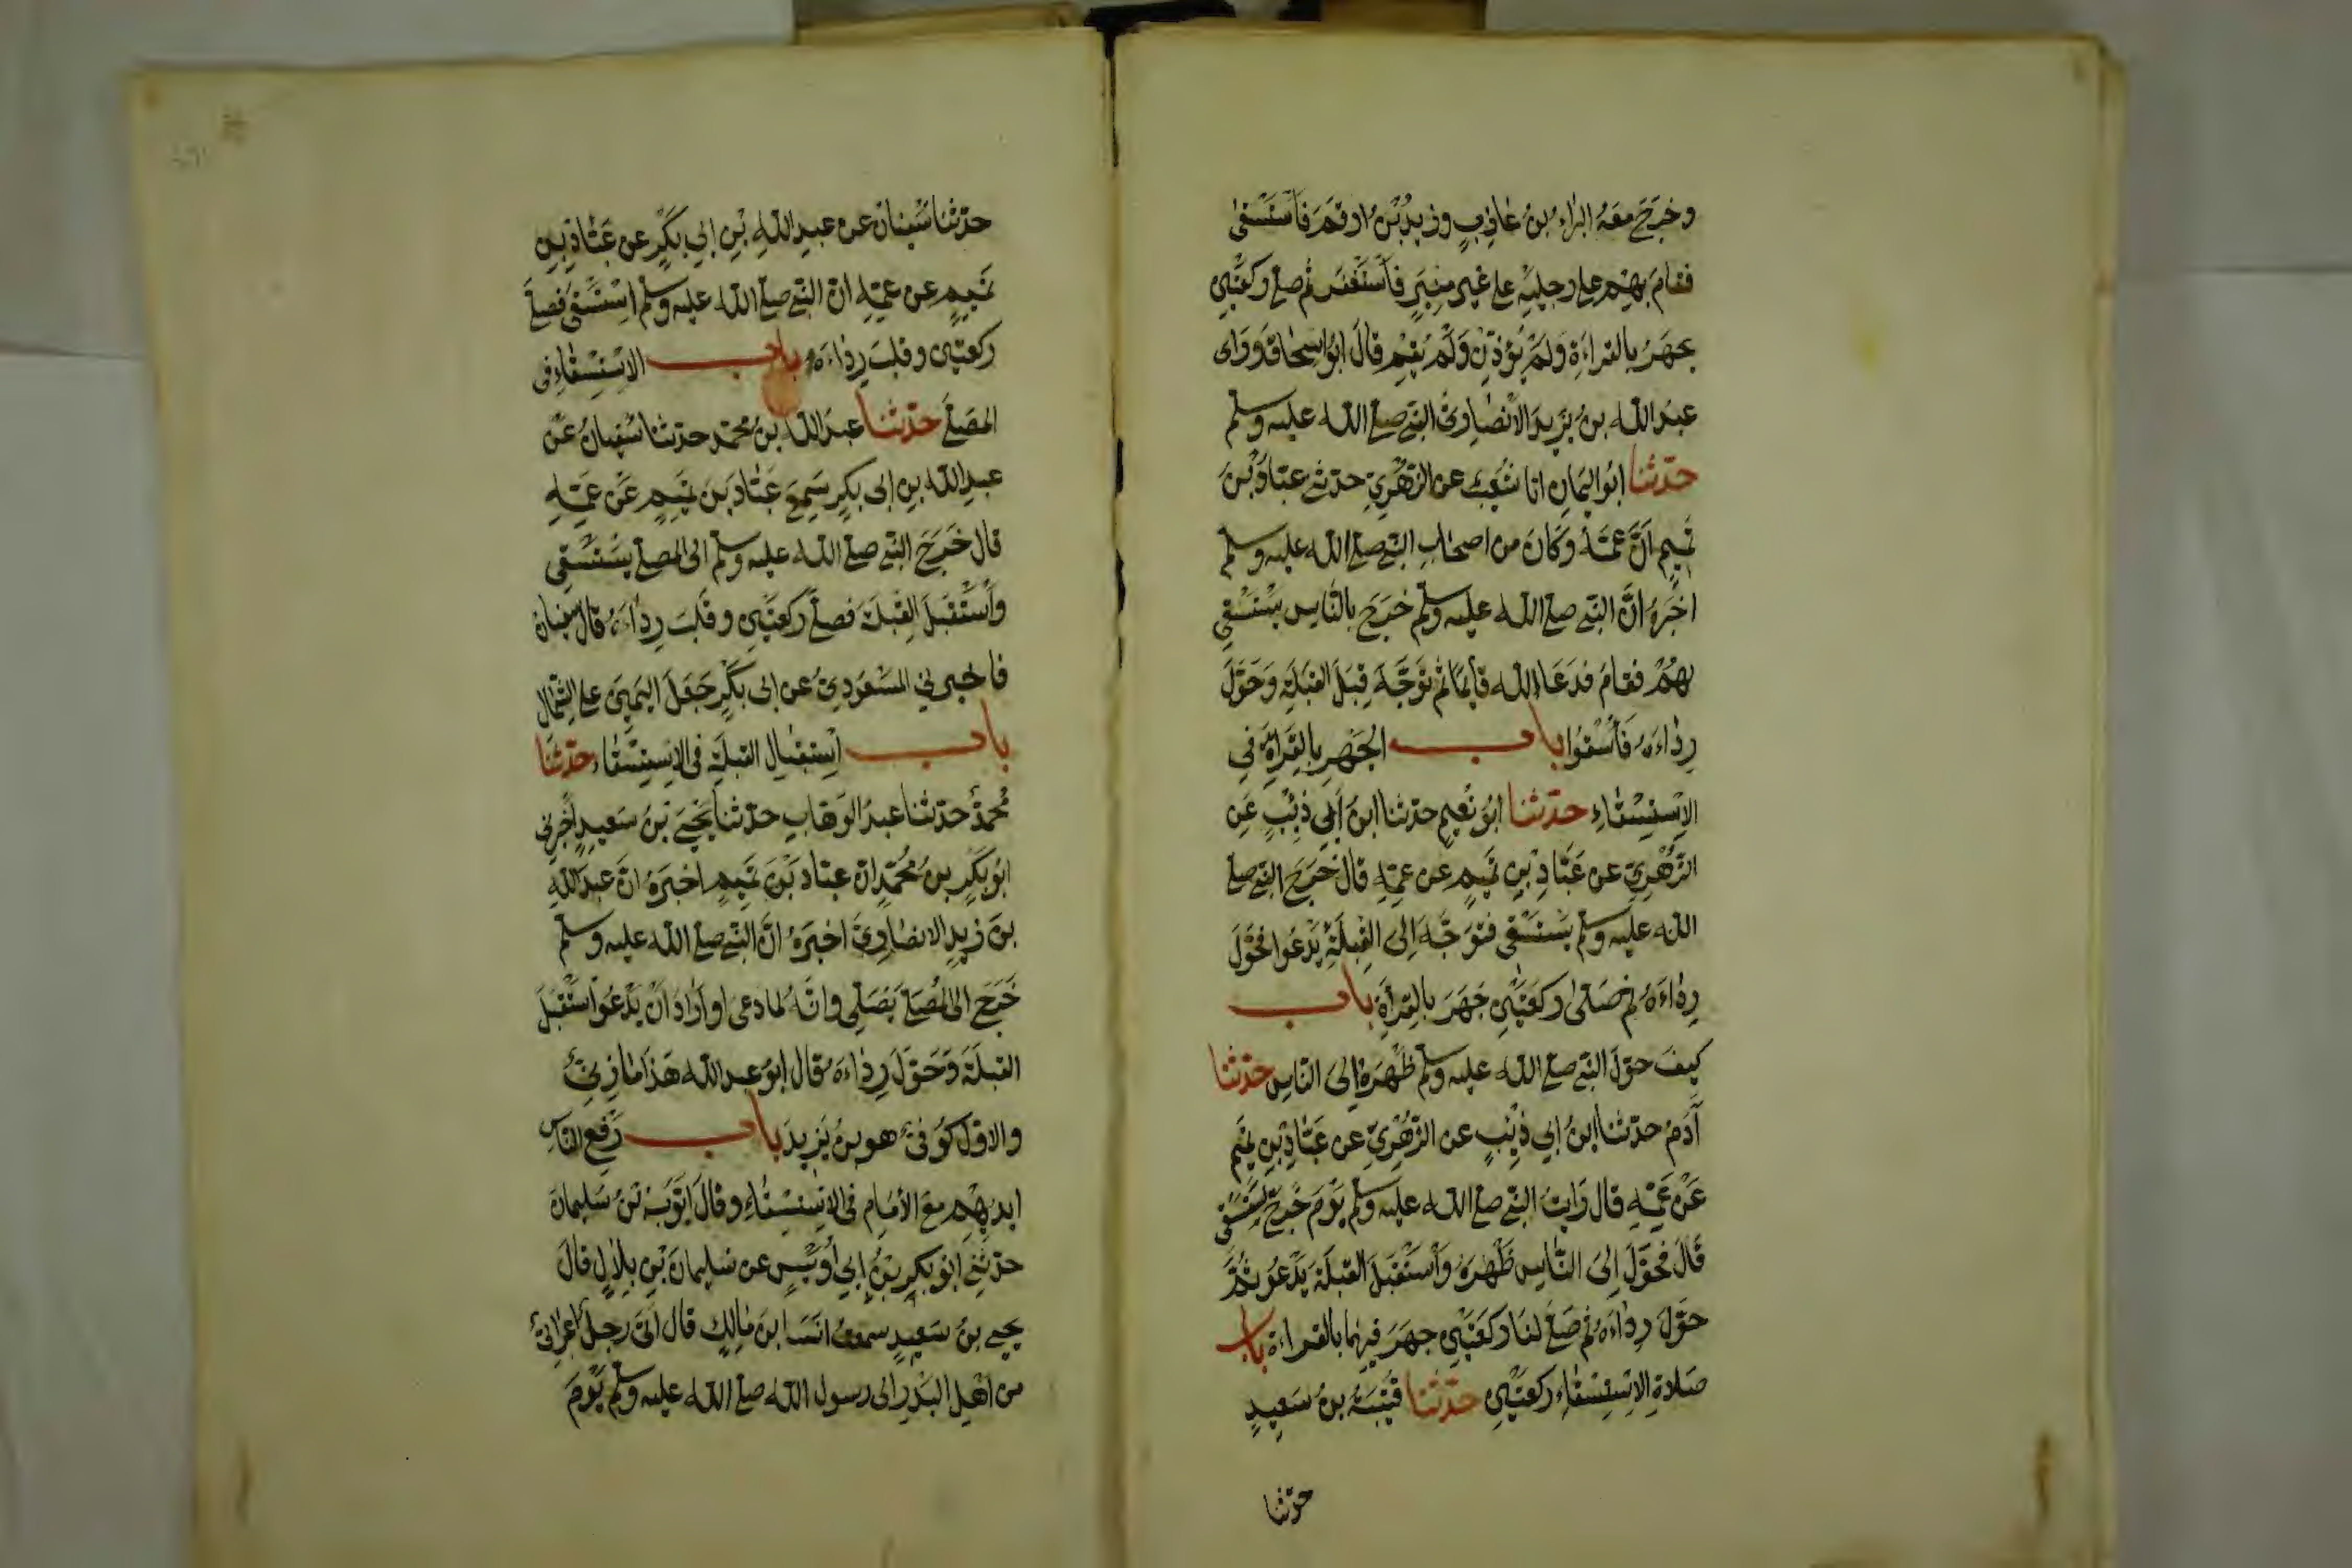 وخرج معه البراء بن عازب وزيد بن ارقم فاستسقى
فقام بهم على رجليه على غير منبر فاستغفر ثم صلى ركعتين
يجهر بالقراءة ولم يؤذن ولم يقم قال ابو اسحاق وراى
عبد الله بن يزيد الانصارى النبى صلى الله عليه وسلم
حدثنا ابو اليمان انا شعيب عن الزهرى حدثنى عباد بن
تميم ان عمه وكان من اصحاب النبى صلى الله عليه وسلم
اخبره ان النبى صلى الله عليه وسلم خرج بالناس يستسقى
بهم فقام فدعا الله قائما ثم توجه قبل القبلة وحول
رداءه فاسقوا باب الجهر بالقراءة فى
الاستسقاء حدثنا ابو نعيم حدثنا ابن ابى ذئب عن
الزهرى عن عباد بن تميم عن عمه قال خرج النبى صلى
الله عليه وسلم يستسقى فتوجه الى القبلة يدعوا فحول
رداءه ثم صلى ركعتين جهر بالقراءة باب
كيف حول النبى صلى الله عليه وسلم ظهره الى الناس حدثنا
آدم حدثنا ابن ابى ذئب عن الزهرى عن عباد بن تميم
عن عمه قال رايت النبى صلى الله عليه وسلم يوم خرج يستسقى
قال فحول الى الناس ظهره واستقبل القبلة يدعو ثم
حول رداءه ثم صلى لنا ركعتين جهر فيهما بالقراءة باب
صلاة الاستسقاء ركعتين حدثنا قتيبة بن سعيد
حدثنا
حدثنا سفيان عن عبد الله بن ابى بكر عن عباد بن
تميم عن عمه ان النبى صلى الله عليه وسلم استسقى فصلى
ركعتين وقلب رداءه باب الاستسقاء فى
المصلى حدثنا عبد الله بن محمد حدثنا سفيان عن
عبد الله بن ابى بكر سمع عباد بن تميم عن عمه
قال خرج النبى صلى الله عليه وسلم الى المصلى يستسقى
واستقبل القبلة فصلى ركعتين وقلب رداءه قال سفيان
فاخبرنى المسعودى عن ابى بكر جعل اليمين على الشمال
باب استقبال القبلة فى الاستسقاء حدثنا
محمد حدثنا عبد الوهاب حدثنا يحيى بن سعيد اخبرنى
ابو بكر بن محمد ان عباد بن تميم اخبره ان عبد الله
بن زيد الانصارى اخبره ان النبى صلى الله عليه وسلم
خرج الى المصلى يصلى وانه لما دعى او اراد ان يدعو استقبل
القبلة وحول رداءه قال ابو عبد الله هذا مازنى
والاول كوفى هو بن يزيد باب رفع الناس
ايديهم مع الامام فى الاستسقاء وقال ايوب بن سليمان
حدثنى ابو بكر بن ابى اويس عن سليمان بن بلال قال
يحيى بن سعيد سمعت انسا ابن مالك قال اتى رجل اعرابى
من اهل البدر الى رسول الله صلى الله عليه وسلم يوم